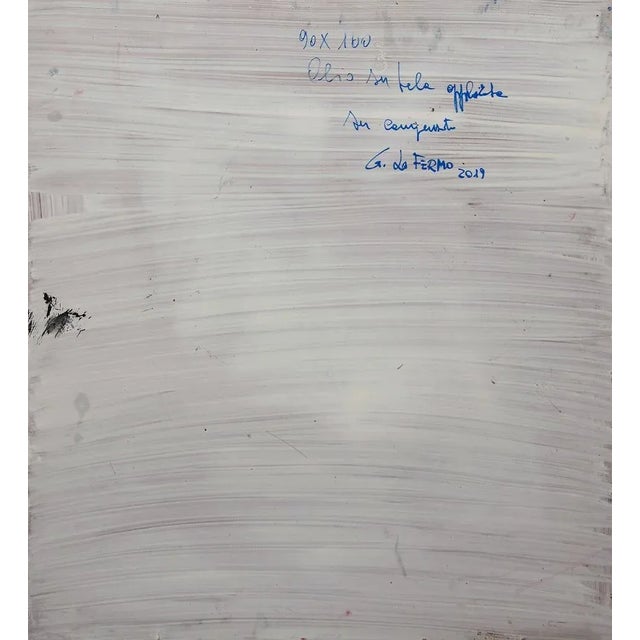 90 X 100
Olio su tela applicata
su
G. La FERMO 2019